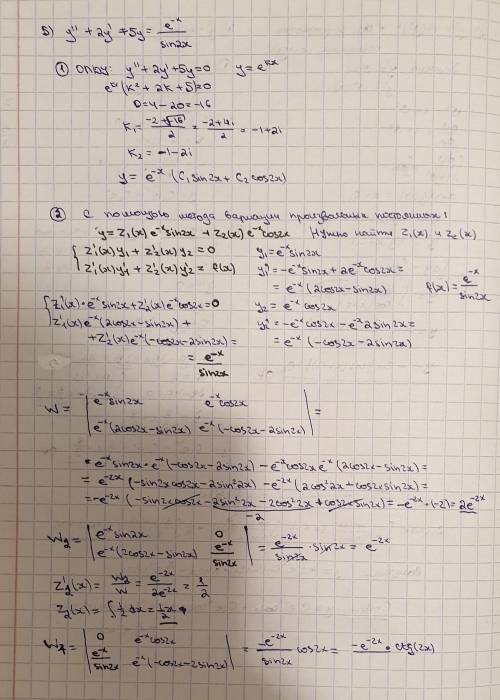 5) y'' + 2y' + 5y = e^-x / sin2x
① ОЛОУ: y'' + 2y' + 5y = 0 y = e^kx
e^kx (k² + 2k + 5) = 0
D = 4 - 20 = -16
k₁ = (-2 + √-16) / 2 = (-2 + 4i) / 2 = -1 + 2i
k₂ = -1 - 2i
y = e^-x (C₁ sin2x + C₂ cos2x)
② С помощью метода вариации произвольных постоянных:
y = z₁(x) e^-x sin2x + z₂(x) e^-x cos2x Нужно найти z₁(x) и z₂(x)
{ z₁'(x) y₁ + z₂'(x) y₂ = 0 y₁ = e^-x sin2x
z₁'(x) y₁' + z₂'(x) y₂' = f(x) y₁' = -e^-x sin2x + 2e^-x cos2x =
= e^-x (2cos2x - sin2x) f(x) = e^-x / sin2x
{ z₁'(x) · e^-x sin2x + z₂'(x) e^-x cos2x = 0 y₂ = e^-x cos2x
z₁'(x) e^-x (2cos2x - sin2x) + y₂' = -e^-x cos2x - e^-x 2sin2x =
+ z₂'(x) e^-x (-cos2x - 2sin2x) = = e^-x (-cos2x - 2sin2x)
= e^-x / sin2x
W = | e^-x sin2x e^-x cos2x | =
| e^-x (2cos2x - sin2x) e^-x (-cos2x - 2sin2x) |
= e^-x sin2x · e^-x (-cos2x - 2sin2x) - e^-x cos2x e^-x (2cos2x - sin2x) =
= e^-2x (-sin2x cos2x - 2sin²2x) - e^-2x (2cos²2x + cos2x sin2x) =
= -e^-2x (-sin2x cos2x - 2sin²2x - 2cos²2x + cos2x sin2x) = -e^-2x · (-2) = 2e^-2x
-2
W₂ = | e^-x sin2x 0 | = e^-2x / sin2x · sin2x = e^-2x
| e^-x (2cos2x - sin2x) e^-x / sin2x |
z₂'(x) = W₂ / W = e^-2x / 2e^-2x = 1/2
z₂(x) = ∫ 1/2 dx = 1/2 x
W₁ = | 0 e^-x cos2x | = -e^-2x / sin2x cos2x = -e^-2x · ctg(2x)
| e^-x / sin2x e^-x (-cos2x - 2sin2x) |